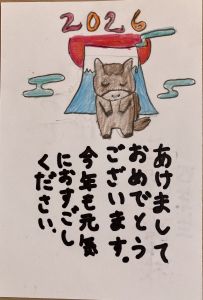 2026
あけまして
おめでとう
ございます。
今年も元気
におすごし
ください。